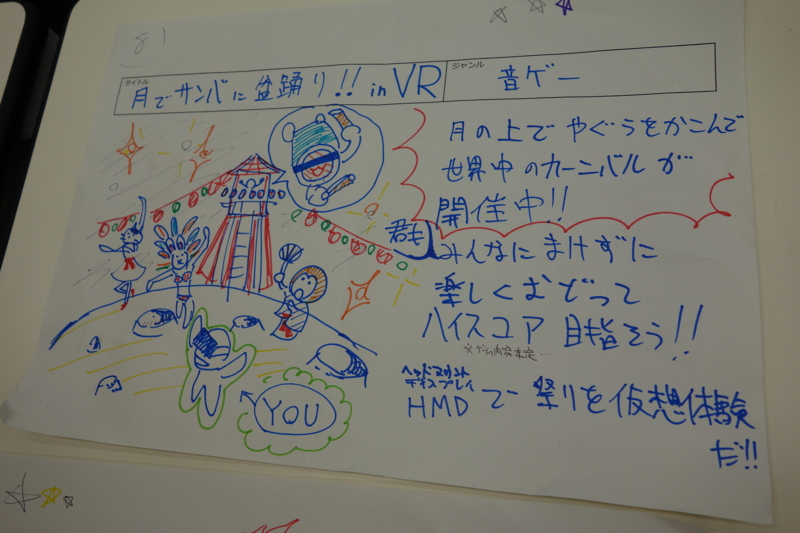 8)
タイトル
月でサンバに盆踊り!! in VR
ジャンル
音ゲー
月の上で やぐらをかこんで
世界中のカーニバルが
開催中!!
みんなにまけずに
楽しくおどって
ハイスコア 目指そう!!
※ゲーム内容未定…
ヘッドマウント
ディスプレイ
HMDで 祭りを仮想体験
だ!!
YOU